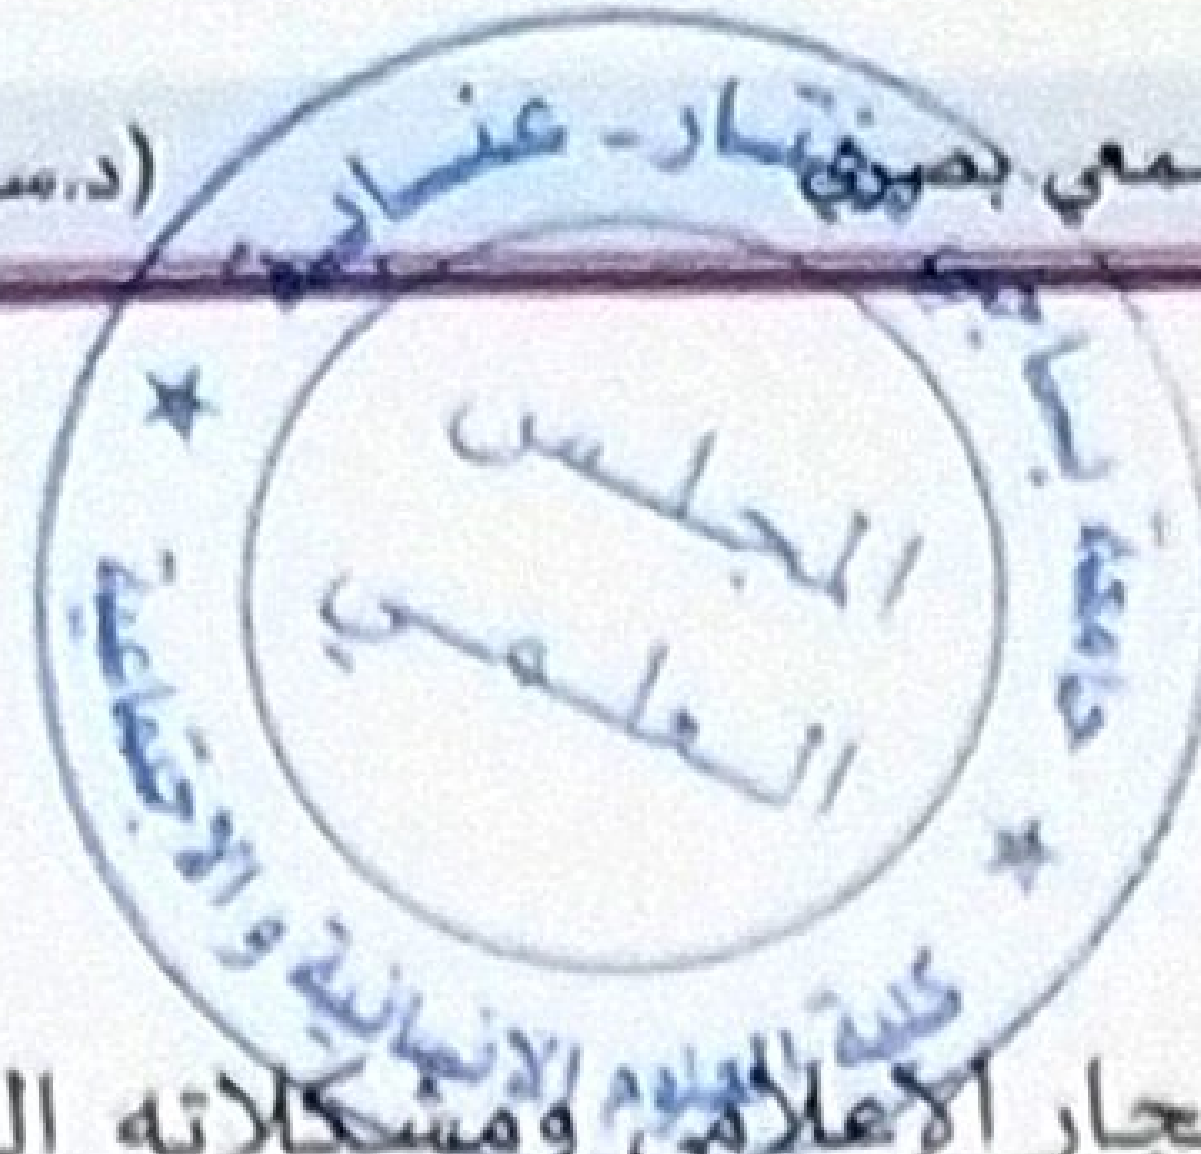 سمعي بصري
(د.س
جامعة باجي مختار - عنابة
المجلس
العلمي
كلية العلوم الانسانية والاجتماعية
الاعلامي ومشكلاته